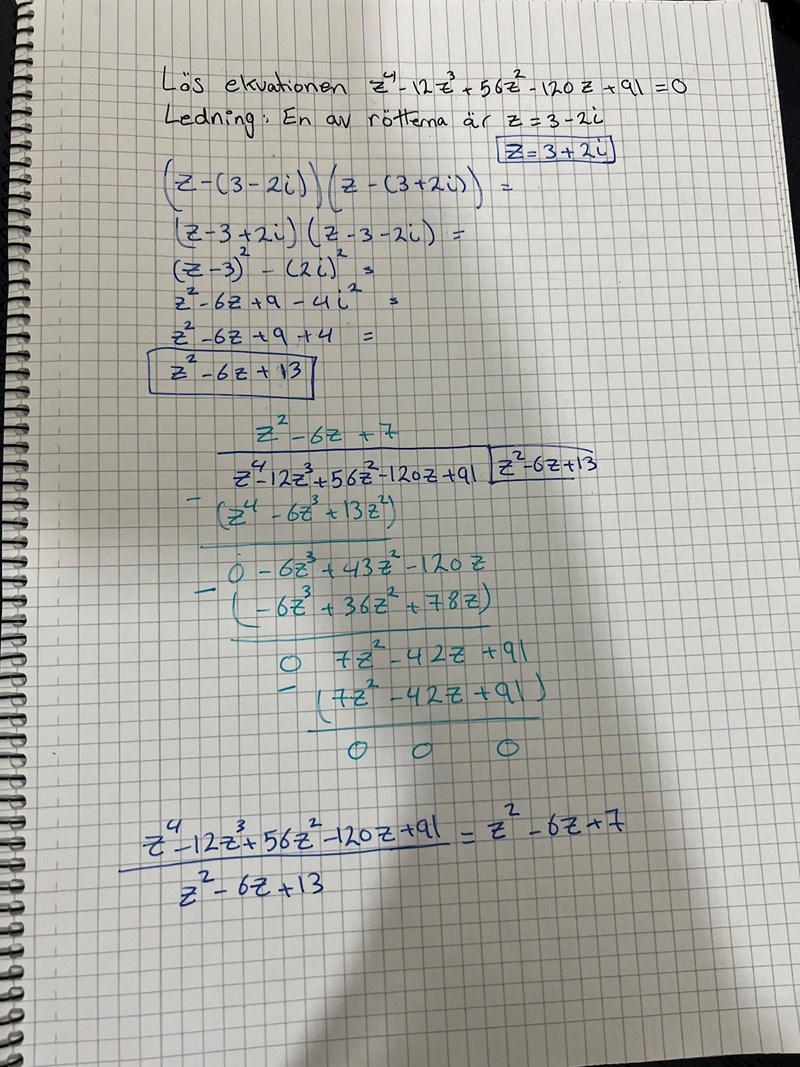 Lös ekvationen z⁴-12z³+56z²-120z+91=0
Ledning: En av rötterna är z=3-2i
z=3+2i
(z-(3-2i))(z-(3+2i)) =
(z-3+2i)(z-3-2i) =
(z-3)²-(2i)² =
z²-6z+9-4i² =
z²-6z+9+4 =
z²-6z+13
z²-6z+7
z⁴-12z³+56z²-120z+91 z²-6z+13
-(z⁴-6z³+13z²)
0-6z³+43z²-120z
-(-6z³+36z²+78z)
0 7z²-42z+91
-(7z²-42z+91)
0 0 0
z⁴-12z³+56z²-120z+91 = z²-6z+7
z²-6z+13